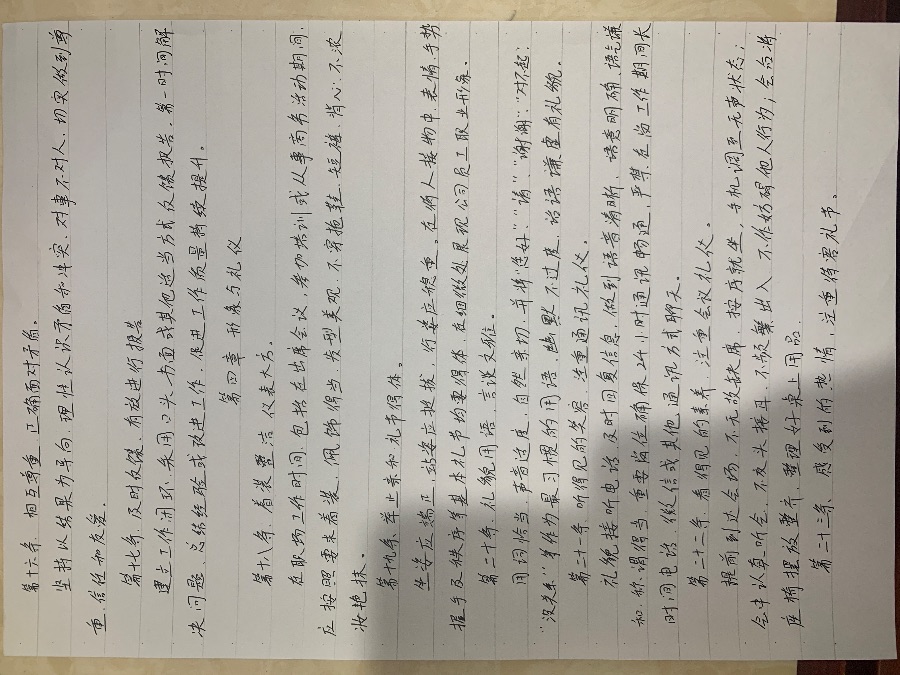 第十六条、相互尊重、正确面对矛盾。
坚持以结果为导向，理性认识矛盾和冲突，对事不对人，切实做到尊
重、信任和友爱。
第十七条、及时反馈、有效进行报告
建立工作闭环，采用口头、书面或其他适当方式反馈报告，第一时间解
决问题、总结经验或改进工作，促进工作质量持续提升。
第四章 形象与礼仪
第十八条、着装整洁、仪表大方。
在职场工作时间，包括在出席会议，参加培训或从事商务活动期间，
应按照要求着装、佩饰得当、发型美观，不穿拖鞋、短裤、背心，不浓
妆艳抹。
第十九条、举止亲和、礼节得体。
坐姿应端正，站姿应挺拔，行姿应稳重。在待人接物中表情、手势、
握手及秩序等基本礼节均要得体，在细微处展现公司员工职业形象。
第二十条、礼貌用语、言谈文雅。
用词恰当，声音适度，自然亲切，并将“您好”“请”“谢谢”“对不起”
“没关系”等作为最习惯的用语，幽默不过度，话语谦虚有礼貌。
第二十一条、听得见的笑容，注重通讯礼仪。
礼貌接听电话，及时回复信息，做到语音清晰、语意明确、语气谦
和、称谓得当，重要岗位确保24小时通讯畅通，严禁在岗工作期间长
时间电话、微信或其他通讯方式聊天。
第二十二条、看得见的素养，注重会议礼仪。
提前到达会场，不无故缺席，按序就坐，手机调至无声状态；
会中认真聆听，不交头接耳，不频繁出入，不作妨碍他人行为；会后将
座椅摆放整齐，整理好桌上用品。
第二十三条、感受到的热情，注重待客礼节。